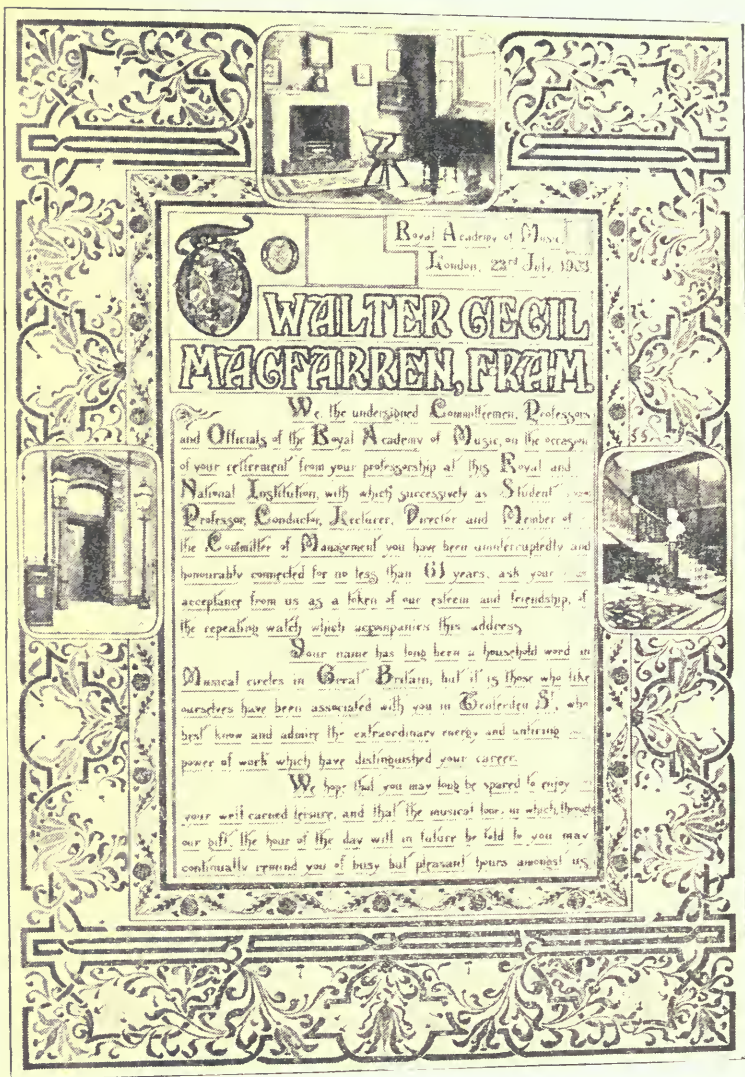 Royal Academy of Music,
London, 23rd July, 1903
To
WALTER CECIL
MACFARREN, F.R.A.M.
We, the undersigned Committeemen, Professors
and Officials of the Royal Academy of Music, on the occasion
of your retirement from your professorship at this Royal and
National Institution, with which successively as Student
Professor, Conductor, Lecturer, Director and Member of
the Committee of Management you have been uninterruptedly and
honourably connected for no less than 61 years, ask your
acceptance from us as a token of our esteem and friendship, of
the repeating watch which accompanies this address.
Your name has long been a household word in
Musical circles in Great Britain, but it is those who like
ourselves have been associated with you in Tenterden St, who
best know and admire the extraordinary energy and untiring
power of work which have distinguished your career.
We hope that you may long be spared to enjoy
your well earned leisure, and that the musical tone, in which, through
our gift, the hour of the day will in future be told to you may
continually remind you of busy but pleasant hours amongst us.